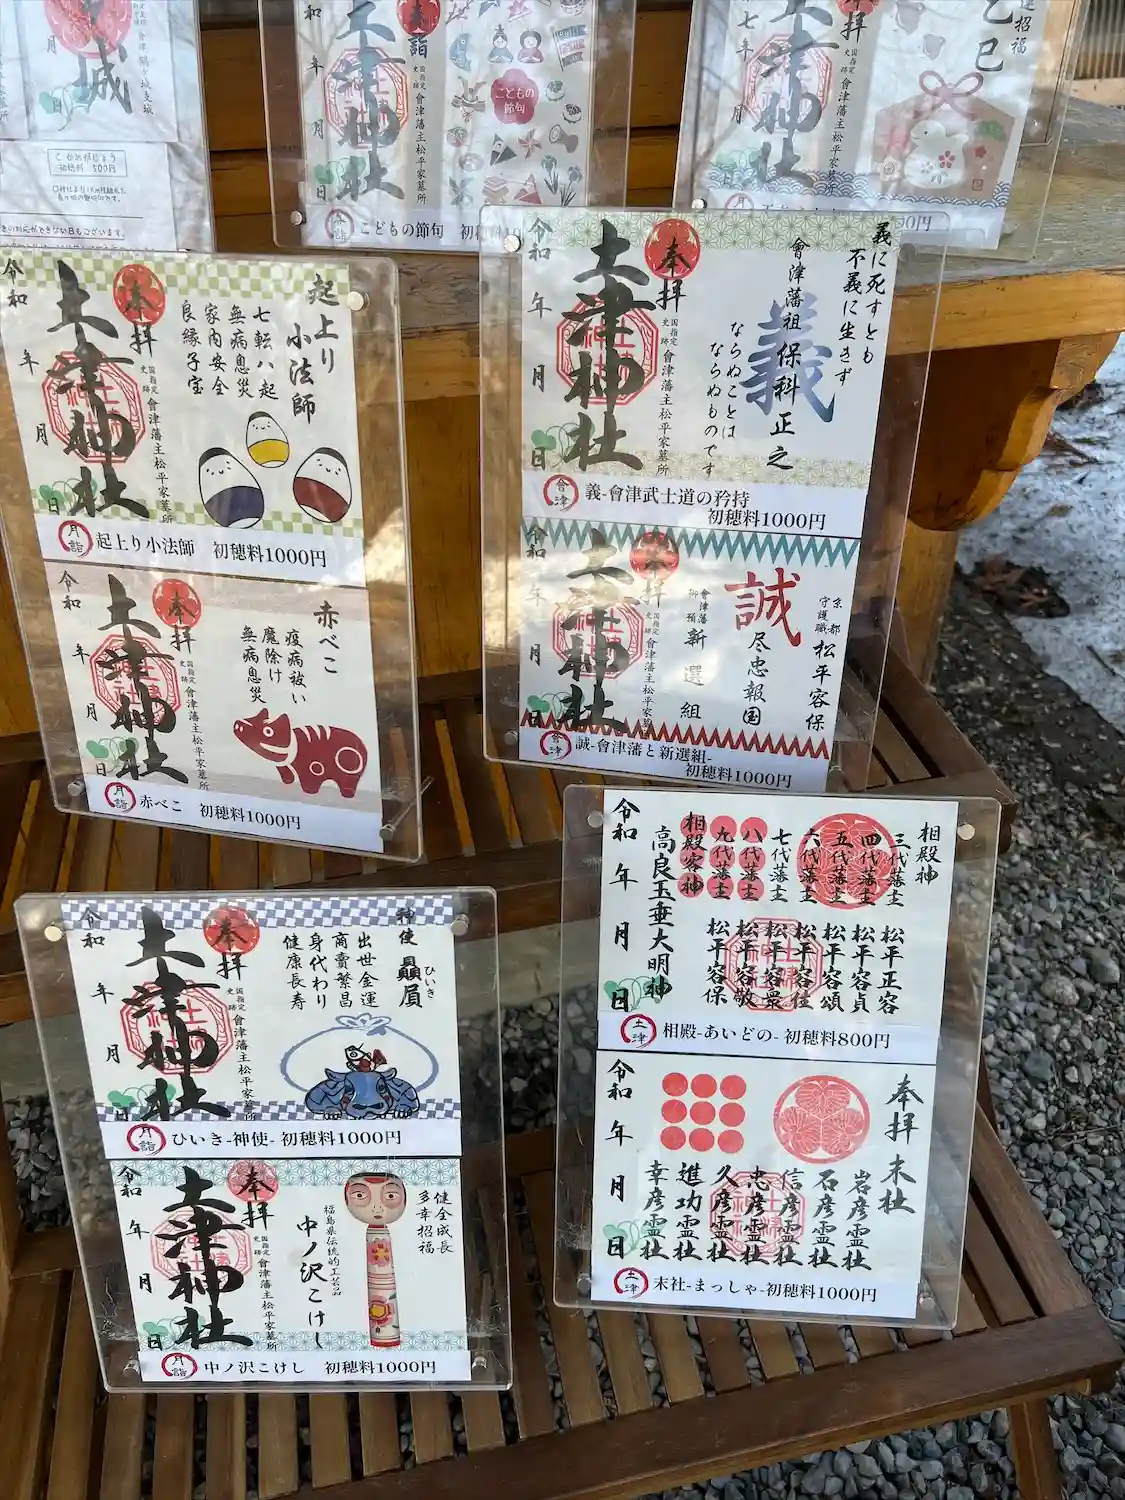 城
會津開城支城
どかめがじょう
初穂料 500円
令和
年
月
日
土津神社
詣
国指定
史跡
會津藩主松平家墓所
こどもの
節句
こどもの節句
七年
月
日
土津神社
拝
国指定
史跡
會津藩主松平家墓所
乙巳
招福
令和
年
月
土津神社
奉拝
国指定
史跡
會津藩主松平家墓所
起上り
小法師
七転八起
無病息災
家内安全
良縁子宝
月詣
起上り小法師 初穂料1000円
令和
年
月
土津神社
奉拝
国指定
史跡
會津藩主松平家墓所
赤べこ
疫病祓い
魔除け
無病息災
月詣
赤べこ 初穂料1000円
令和
年
月
日
土津神社
奉拝
国指定
史跡
會津藩主松平家墓所
義に死すとも
不義に生きず
義
會津藩祖保科正之
ならぬことは
ならぬものです
會津
義-會津武士道の矜持
初穂料1000円
令和
年
月
日
土津神社
奉拝
国指定
史跡
會津藩主松平家墓所
京都
守護職
松平容保
誠
尽忠報国
會津藩
御預
新選組
會津
誠-會津藩と新選組-
初穂料1000円
令和
年
月
日
土津神社
奉拝
国指定
史跡
會津藩主松平家墓所
神使
贔屓
ひいき
出世金運
商賣繁昌
身代わり
健康長寿
月詣
ひいき-神使- 初穂料1000円
令和
年
月
日
土津神社
奉拝
国指定
史跡
會津藩主松平家墓所
健全成長
多幸招福
福島県伝統的工芸品
中ノ沢こけし
月詣
中ノ沢こけし 初穂料1000円
相殿神
三代藩主 松平正容
四代藩主 松平容貞
五代藩主 松平容頌
六代藩主 松平容住
七代藩主 松平容衆
八代藩主 松平容敬
九代藩主 松平容保
相殿客神
高良玉垂大明神
令和
年
月
日
土津
相殿-あいどの- 初穂料800円
奉拝 末社
岩彦霊社
石彦霊社
信彦霊社
忠彦霊社
久彦霊社
進功霊社
幸彦霊社
令和
年
月
日
土津
末社-まっしゃ-初穂料1000円